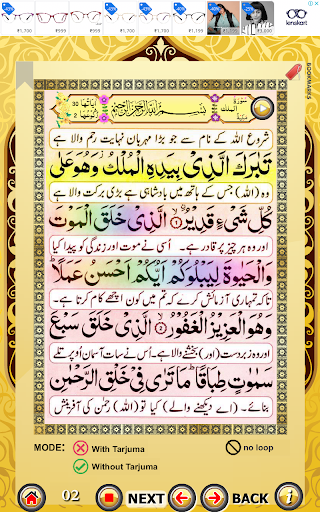 -40%
₹1,700
₹999
₹995
-40%
₹1,700
₹1,199
-40%
₹3,000
lenskart
BOOKMARKS
سُورَةُ الْمُلْكِ
بِسْمِ اللّٰهِ الرَّحْمٰنِ الرَّحِيْمِ
30
2
شروع الله کے نام سے جو بڑا مہربان نہایت رحم والا ہے
تَبٰرَكَ الَّذِیْ بِیَدِهِ الْمُلْكُ وَهُوَ عَلٰی
وہ (الله) جس کے ہاتھ میں بادشاہی ہے بڑی برکت والا ہے
كُلِّ شَیْءٍ قَدِیْرُ ۙ﴿۱﴾ الَّذِیْ خَلَقَ الْمَوْتَ
اور وہ ہر چیز پر قادر ہے۔ اُسی نے موت اور زندگی کو پیدا کیا
وَالْحَیٰوةَ لِیَبْلُوَكُمْ اَیُّكُمْ اَحْسَنُ عَمَلًا ؕ
تاکہ تمہاری آزمائش کرے کہ تم میں کون اچھے کام کرتا ہے۔
وَهُوَ الْعَزِیْزُ الْغَفُوْرُ ۙ﴿۲﴾ الَّذِیْ خَلَقَ سَبْعَ
اور وہ زبردست (اور) بخشنے والا ہے۔ اُس نے سات آسمان اُوپر تلے
سَمٰوٰتٍ طِبَاقًا ؕ مَا تَرٰی فِیْ خَلْقِ الرَّحْمٰنِ
بنائے۔ (اے دیکھنے والے) کیا تو (الله) رحمٰن کی آفرینش
MODE:
With Tarjuma
no loop
Without Tarjuma
02
NEXT
BACK
i